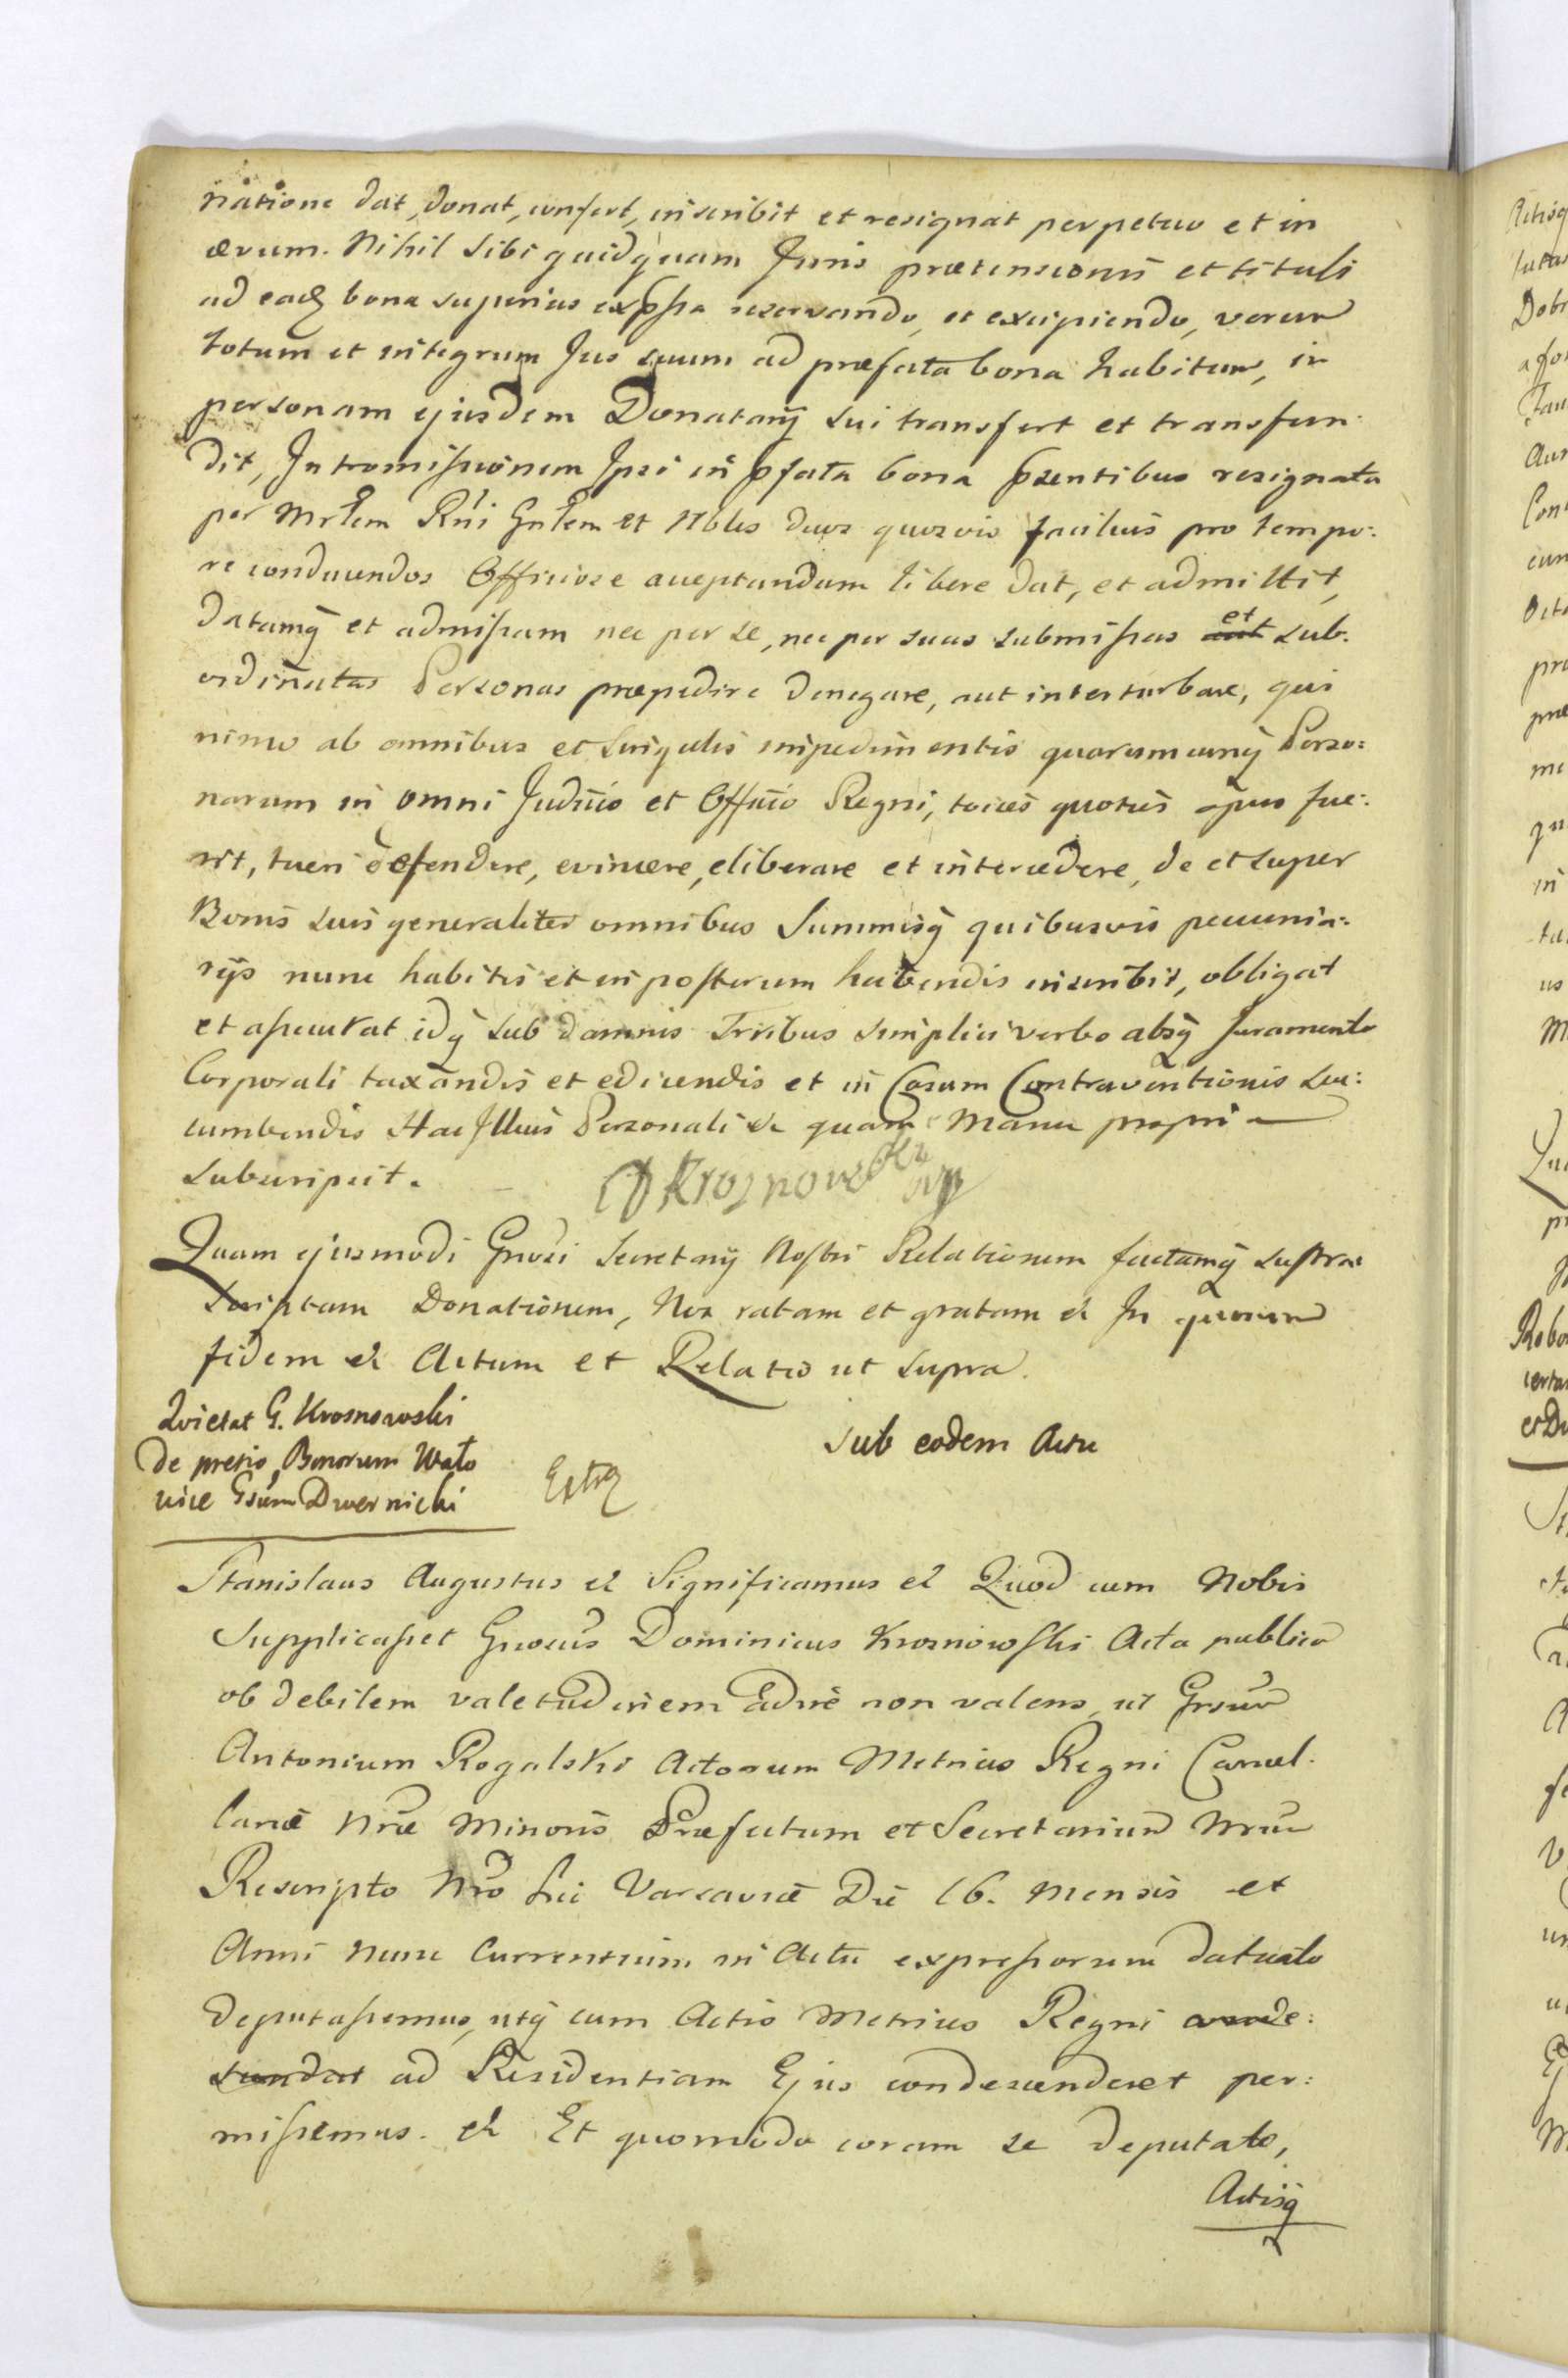 natione dat, donat, confert, inscribit et resignat perpetuo et in
ævum. Nihil sibi quidquam Juris prætensionis et tituli
ad eadq bona superius exp̄ssa reservando, et excipiendo, verum
totum et integrum Jus suum ad præfata bona habitum, in
personam ejusdem Donatarij sui transfert et transfun-
dit, Intromissionem Ipsi in p̄fata bona p̄sentibus resignata
per Mrlem Rni Gnlem et Nbles duos quosvis facilius pro tempo:
re conducendos Officiose acceptandam libere dat, et admittit,
datamq et admissam nec per se, nec per suas submissas et sub-
ordinatas Personas præpedire denegare, aut inturbare, qui
nimo ab omnibus et singulis impedimentis quorumcunq Perso:
narum in omni Judicio et Officio Regni, toties quoties opus fue:
rit, tueri defendere, evincere, eliberare et intercedere, de et super
Bonis suis generaliter omnibus Summisq quibusvis pecunia:
rijs nunc habitis et in posterum habendis inscribit, obligat
et assecurat idq sub damnis Terribus simplici verbo absq Juramento
Corporali taxandis et edicendis et in Casum Contraventionis suc:
cumbendis Hac Illius Personali &c quam Manu propria
subscripsit.
D Krosnowski mp
Quam ejusmodi Gnosi Secretarij Nostri Relationem factamq supra
scriptam Donationem, Nos ratam et gratam &c In quorum
fidem &c Actum et Relatio ut supra.
Quietat G. Krosnowski
de pretio Bonorum Wało
wice Gsum Dwernicki
Extr
Sub eodem Actu
Stanislaus Augustus &c Significamus &c Quod cum Nobis
Supplicasset Gnosus Dominicus Krosnowski Acta publica
ob debilem valetudinem adire non valens, ut Gnsum
Antonium Rogalski Actorum Metrices Regni Cancel-
lariæ Nræ Minoris Præfectum et Secretarium Nrum
Rescripto Nro hic Varsaviæ Die 16. Mensis et
Anni nunc Currentium in Actu expressorum dato
deputassemus, utq cum Actis Metrices Regni
ad Residentiam Ejus condescenderet per:
missemus. &c Et quomodo coram se deputato,
Actisq